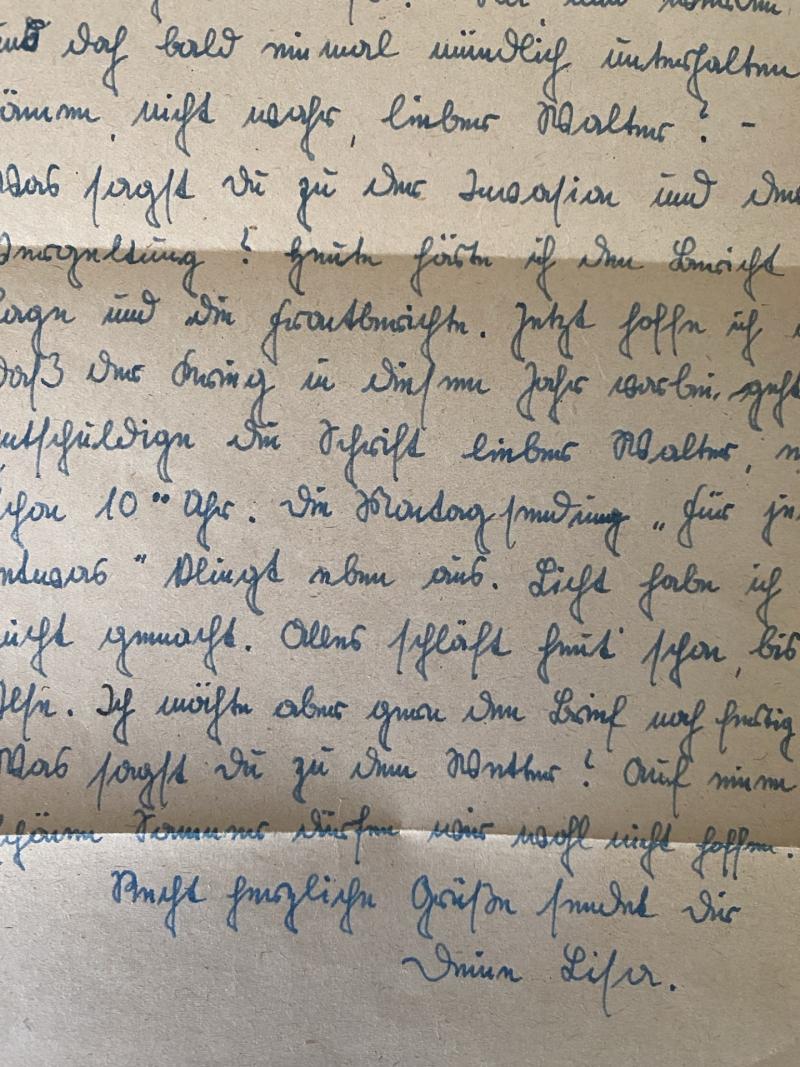 uns doch bald einmal mündlich unterhalten
können, nicht wahr, lieber Walter? -
Was sagst Du zu der Invasion und der
Vergeltung? Heute hörte ich den Bericht
Lage und die Frontberichte. Jetzt hoffe ich
daß der Krieg in diesem Jahr vorbei geht
entschuldige die Schrift lieber Walter,
schon 10⁰⁰ Uhr. Die Montagsendung „Für je
etwas" klingt eben aus. Licht habe ich
nicht gemacht. Alles schläft heut' schon, bis
Ilse. Ich möchte aber gern den Brief noch fertig
Was sagst Du zu dem Wetter? Auf einen
schönen Sommer dürfen wir wohl nicht hoffen.
Recht herzliche Grüße sendet Dir
Deine Lisa.